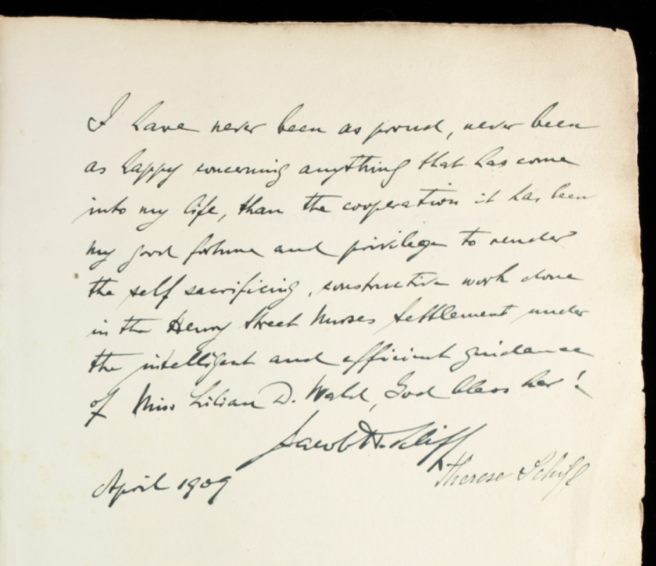 I have never been as proud, never been
as happy concerning anything that has come
into my life, than the cooperation it has been
my good fortune and privilege to render
the self sacrificing, constructive work done
in the Henry Street Nurses Settlement under
the intelligent and efficient guidance
of Miss Lilian D. Wald, God bless her!
Jacob H. Schiff
Therese Schiff
April 1909